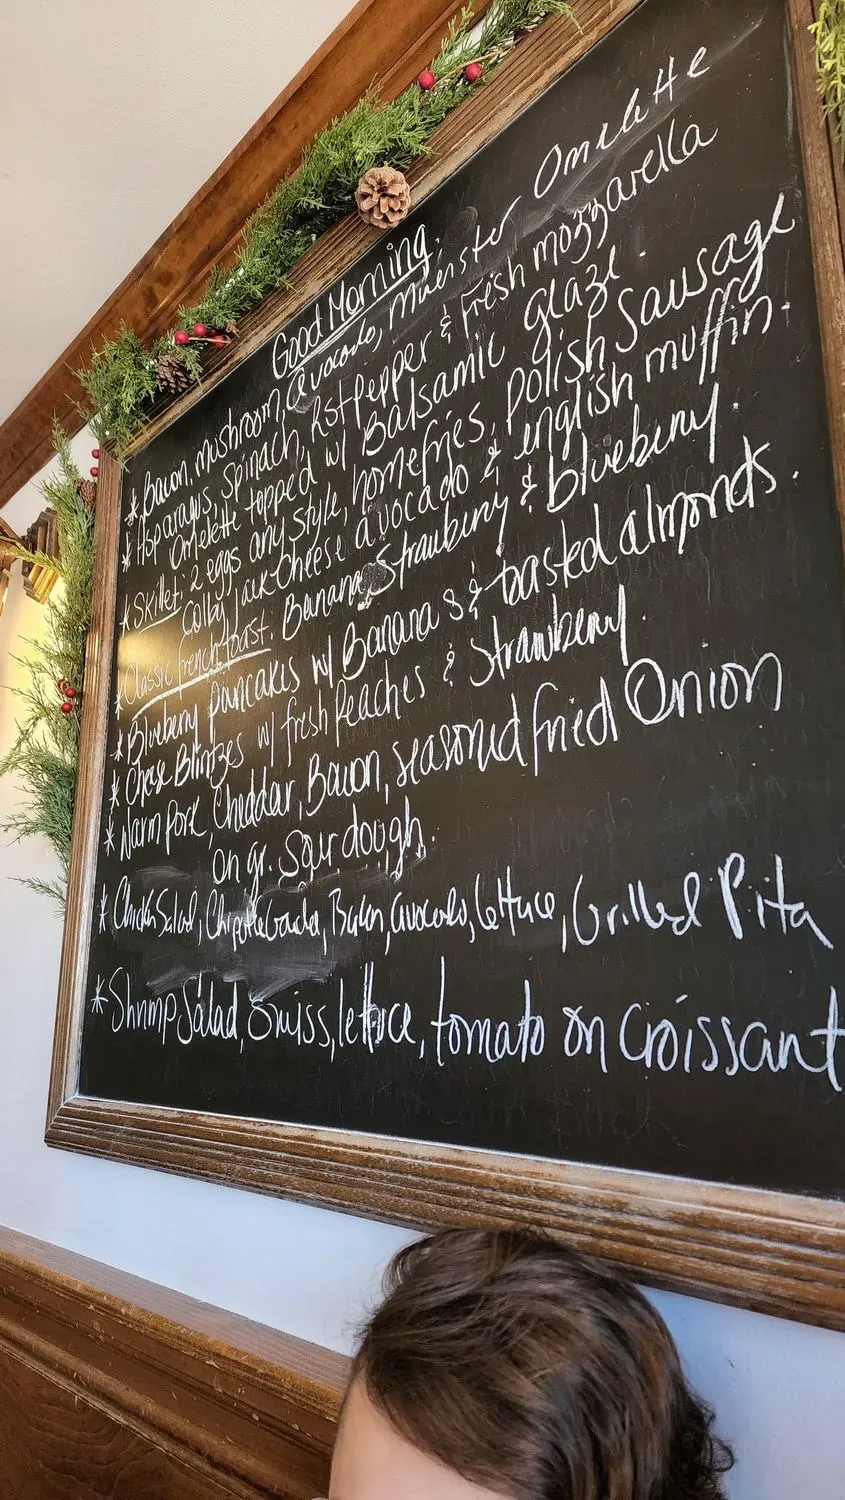 Good Morning.
* Bacon, mushroom, avocado, Muenster Omelette
* Asparagus, Spinach, Rst pepper & Fresh mozzarella
Omelette topped w/ Balsamic glaze.
* Skillet: 2 eggs any style, homefries, polish sausage
Colby Jack Cheese avocado & english muffin.
* Classic french toast. Banana, Strawberry & blueberry.
* Blueberry pancakes w/ Bananas & toasted almonds.
* Cheese Blintzes w/ fresh Peaches & Strawberry.
* Warm Pork, Cheddar, Bacon, seasoned fried Onion
on gr. Sour dough.
* Chicken Salad, Chipotle Gouda, Bacon, avocado, lettuce, Grilled Pita
* Shrimp Salad, Swiss, lettuce, tomato on Croissant